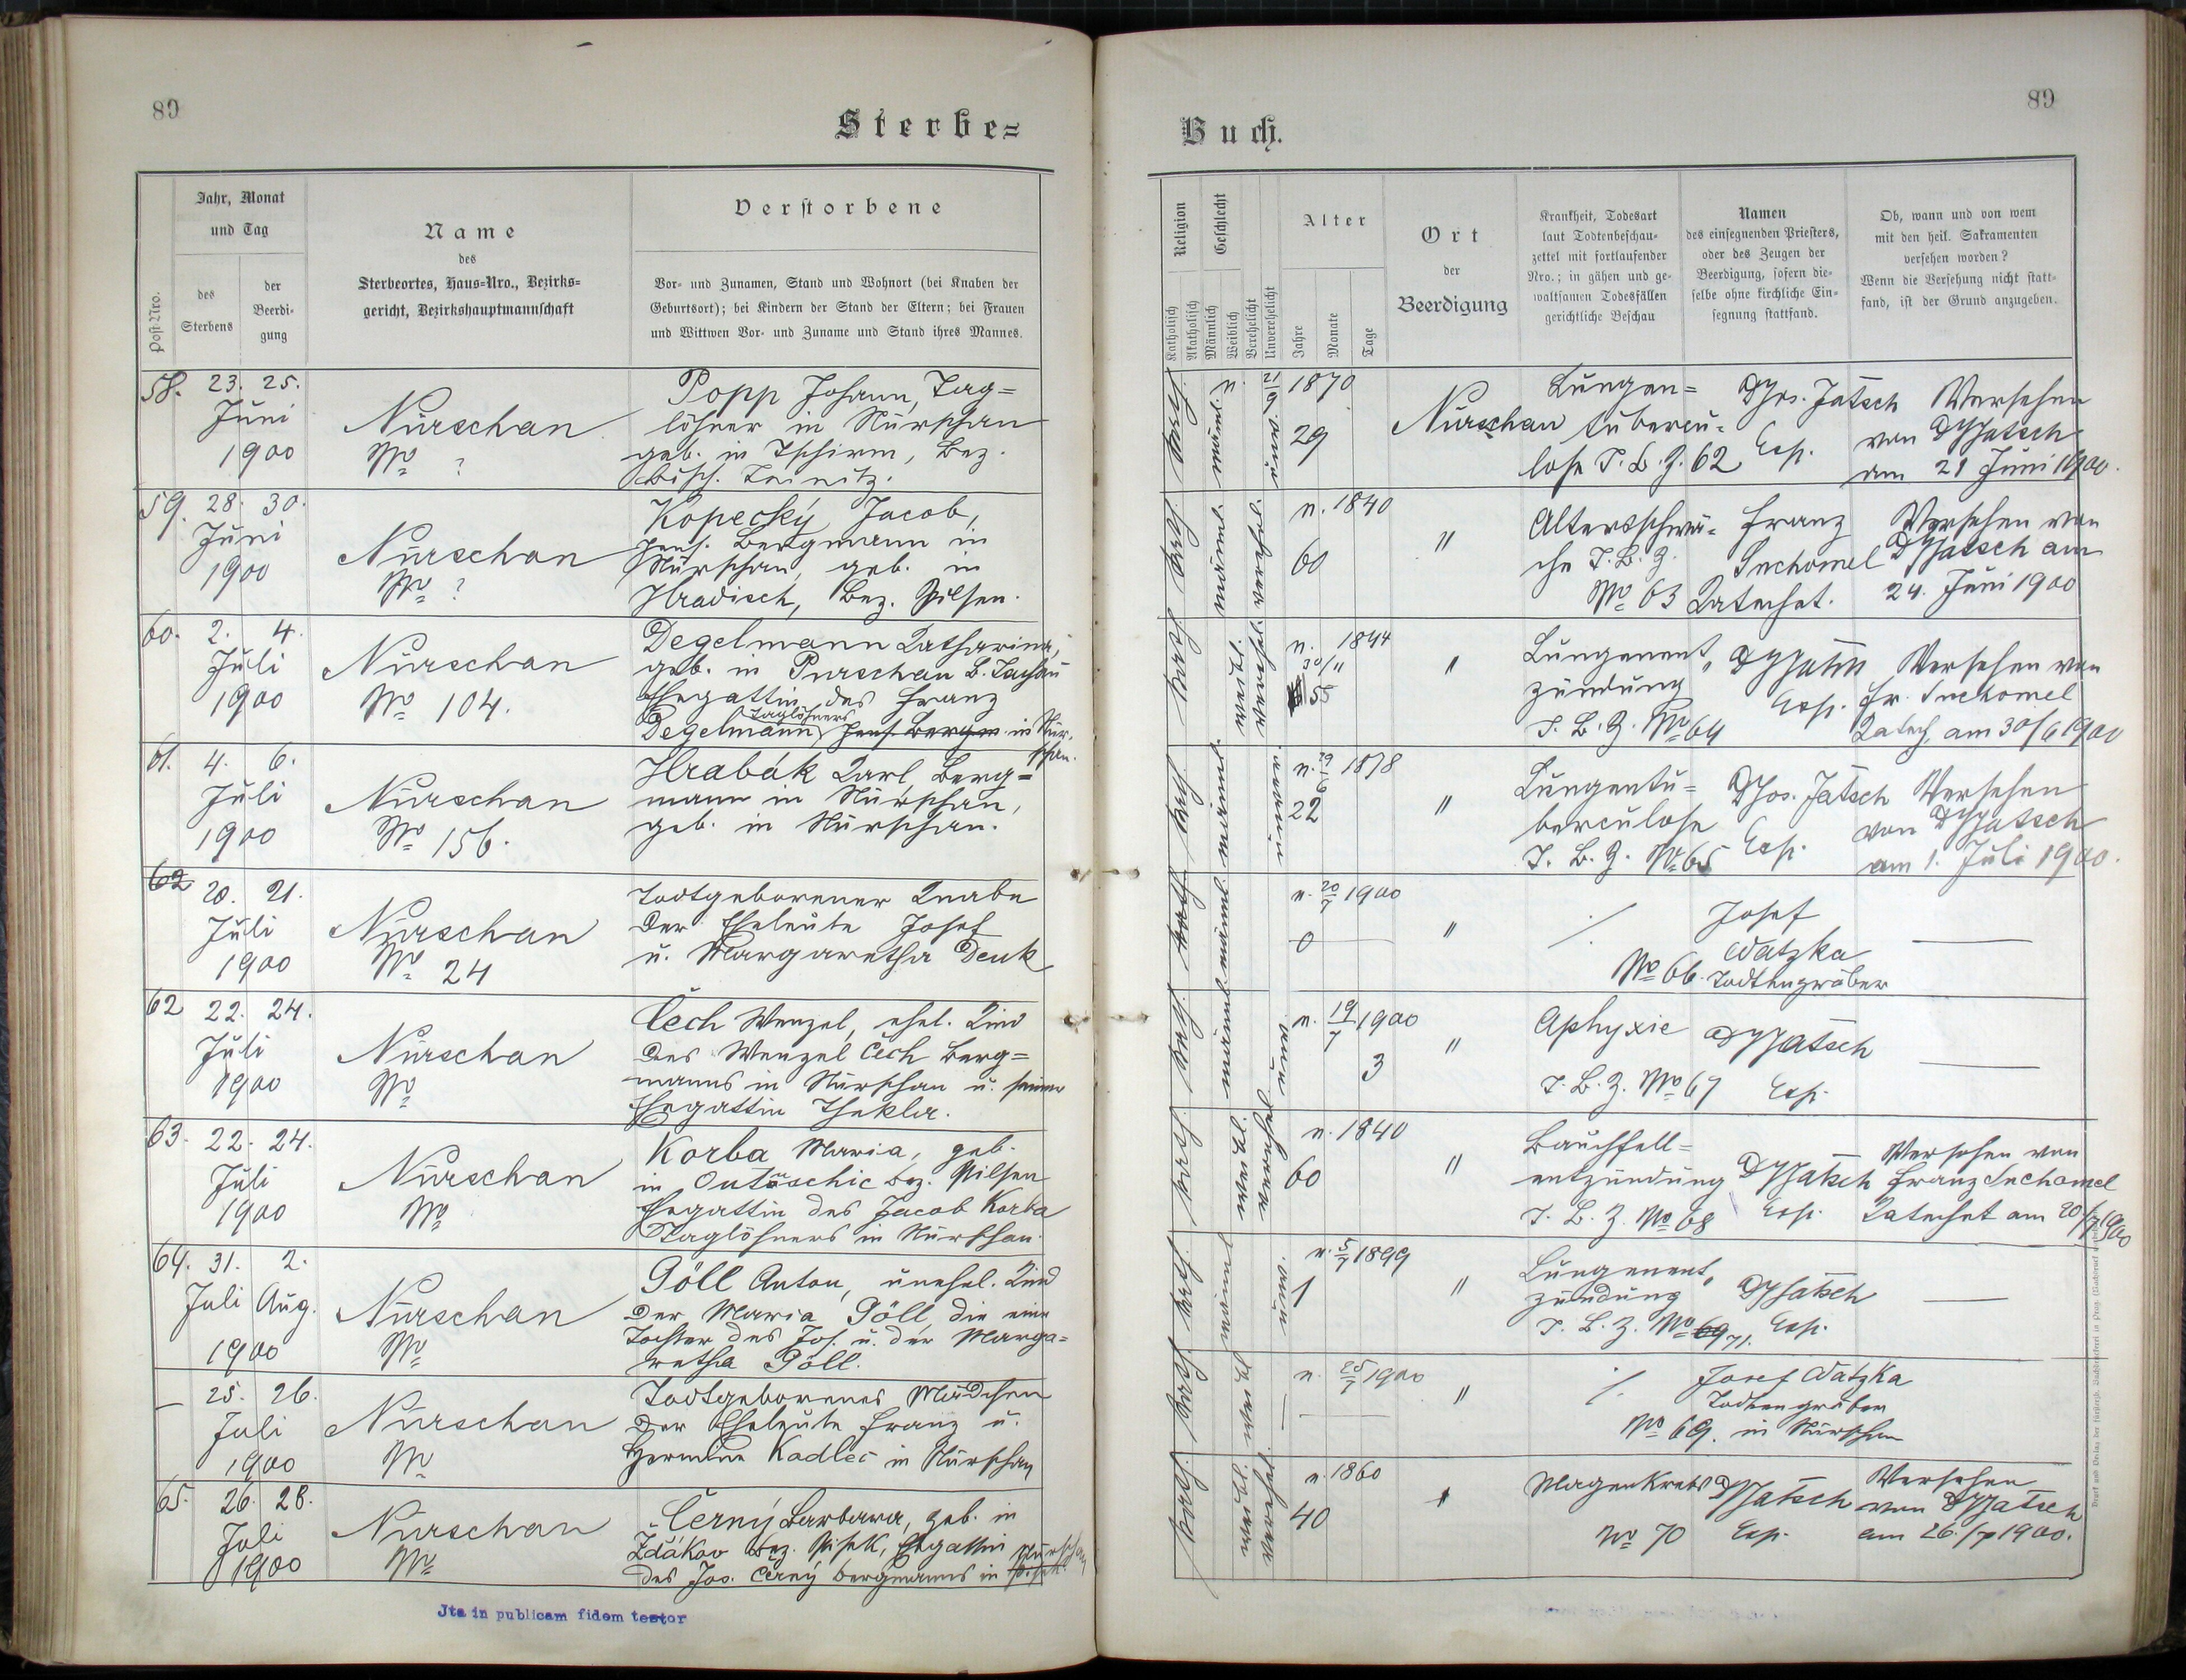 89
Sterbe=
Jahr, Monat
und Tag
Post-Nro.
des
Sterbens
der
Beerdi-
gung
Name
des
Sterbeortes, Haus-Nro., Bezirks-
gericht, Bezirkshauptmannschaft
Verstorbene
Vor- und Zunamen, Stand und Wohnort (bei Knaben der
Geburtsort); bei Kindern der Stand der Eltern; bei Frauen
und Wittwen Vor- und Zuname und Stand ihres Mannes.
58. 23. 25.
Juni
1900
Nürschan
No ?
Popp Johann, Tag=
löhner in Nürschan
geb. in Tschirm, Bez.
Bisch. Teinitz.
59. 28. 30.
Juni
1900
Nürschan
No ?
Kopecký Jacob,
pens. Bergmann in
Nürschan, geb. in
Hradisch, Bez. Pilsen.
60. 2. 4.
Juli
1900
Nürschan
No 104.
Degelmann Katharina,
geb. in Purschau B. Tachau
Ehegattin des Franz
Taglöhners
Degelmann pens. Bergm. in Nür-
schan.
61. 4. 6.
Juli
1900
Nürschan
No 156.
Hrabák Karl, Berg=
mann in Nürschan,
geb. in Nürschan.
62 20. 21.
Juli
1900
Nürschan
No 24
Todtgeborener Knabe
der Eheleute Josef
u. Margaretha Denk
62 22. 24.
Juli
1900
Nürschan
No
Čech Wenzel, ehel. Kind
des Wenzel Čech Berg=
manns in Nürschan u. seiner
Ehegattin Thekla.
63. 22. 24.
Juli
1900
Nürschan
No
Korba Maria, geb.
in Bez. Pilsen
Ehegattin des Jacob Korba
Taglöhners in Nürschan.
64. 31. 2.
Juli Aug.
1900
Nürschan
No
Göll Anton, unehel. Kind
der Maria Göll, die eine
Tochter des Jos. u. der Marga=
retha Göll.
— 25. 26.
Juli
1900
Nürschan
No
Todtgeborenes Mädchen
der Eheleute Franz u.
Hermine Kadlec in Nürschan
65. 26. 28.
Juli
1900
Nürschan
No
Černý Barbara, geb. in
Zdákov Bez. Pisek, Ehegattin
des Jos. Černý Bergmanns in Nürschan
Jta in publicam fidem testor
89
Buch.
Religion
Katholisch
Akatholisch
Geschlecht
Männlich
Weiblich
Verehelicht
Unverehelicht
Alter
Jahre
Monate
Tage
Ort
der
Beerdigung
Krankheit, Todesart
laut Todtenbeschau-
zettel mit fortlaufender
Nro.; in gähen und ge-
waltsamen Todesfällen
gerichtliche Beschau
Namen
des einsegnenden Priesters,
oder des Zeugen der
Beerdigung, sofern die-
selbe ohne kirchliche Ein-
segnung stattfand.
Ob, wann und von wem
mit den heil. Sakramenten
versehen worden?
Wenn die Versehung nicht statt-
fand, ist der Grund anzugeben.
kath. männl. unv.
n. 21/9 1870
29
Nürschan
Lungen=
tubercu-
lose T. B. Z. 62
Jos. Jatsch
Exp.
Versehen
von Jatsch
am 21 Juni 1900.
kath. männl. verehel.
n. 1840
60
"
Altersschwä-
che T. B. Z.
No 63
Franz
Suchomel
Katechet.
Versehen von
Jatsch am
24. Juni 1900
kath. weibl. verehel.
n. 1844
30/11
55
"
Lungenent-
zündung
T. B. Z. No 64
Jatsch
Exp.
Versehen von
Fr. Suchomel
Katech. am 30/6 1900
kath. männl. unver.
n. 1878
22
"
Lungentu=
berculose
T. B. Z. No 65
Jos. Jatsch
Exp.
Versehen
von Jatsch
am 1. Juli 1900.
kath. männl.
n. 20/7 1900
0
"
No 66.
Josef
Watzka
Todtengräber
kath. männl. unv.
n. 19/7 1900
3
"
Aphyxie
T. B. Z. No 67
Jatsch
Exp.
kath. weibl. verehel
n. 1840
60
"
Bauchfell=
entzündung
T. B. Z. No 68
Jatsch
Exp.
Versehen von
Franz Suchomel
Katechet am 20/7 1900
kath. männl unv.
n. 5/7 1899
1
"
Lungenent-
zündung
T. B. Z. No 69 71.
Jatsch
Exp.
kath. weibl
n. 25/7 1900
"
No 69.
Josef Watzka
Todtengräber
in Nürschan
kath. weibl. verehel.
n. 1860
40
"
Magenkrebs
No 70
Jatsch
Exp.
Versehen
von Jatsch
am 26./7 1900.